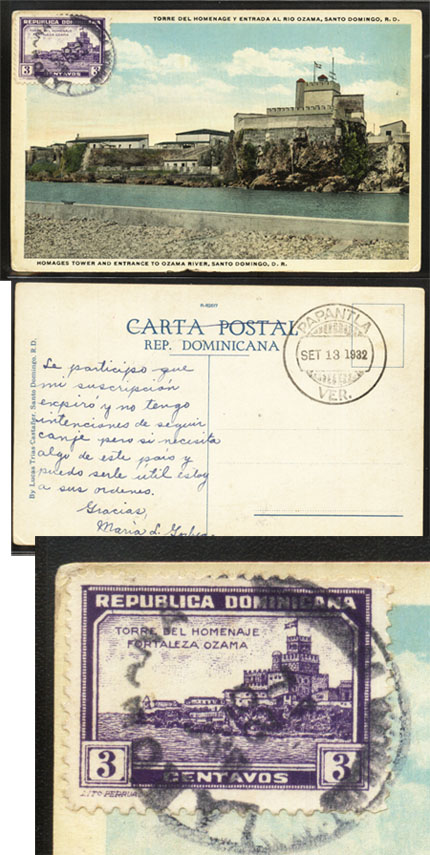 TORRE DEL HOMENAGE Y ENTRADA AL RIO OZAMA, SANTO DOMINGO, R. D.
REPUBLICA DOMINICANA
TORRE DEL HOMENAJE
FORTALEZA OZAMA
3 CENTAVOS 3
HOMAGES TOWER AND ENTRANCE TO OZAMA RIVER, SANTO DOMINGO, D. R.
CARTA POSTAL
REP. DOMINICANA
PAPANTLA
SET 13 1932
VER.
By Lucas Trias Castañer, Santo Domingo, R. D.
Le participo que
mi suscripcion
expiró y no tengo
intenciones de seguir
canje pero si necesita
algo de este pais y
puedo serle útil estoy
a sus ordenes.
Gracias,
Maria L.
REPUBLICA DOMINICANA
TORRE DEL HOMENAJE
FORTALEZA OZAMA
3 3
CENTAVOS
LITO FERRUA